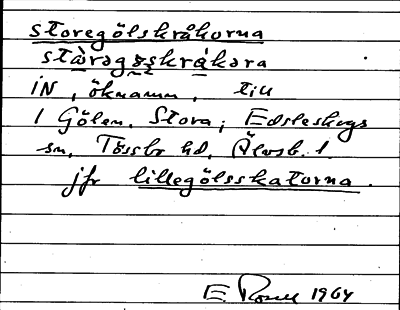 storegölskråkorna
IN, öknamn, till
1 Gölen, Stora; Edsleskogs
sn, Tössbo hd, Älvsb. l.
jfr lillegölsskatorna.
E. 1964